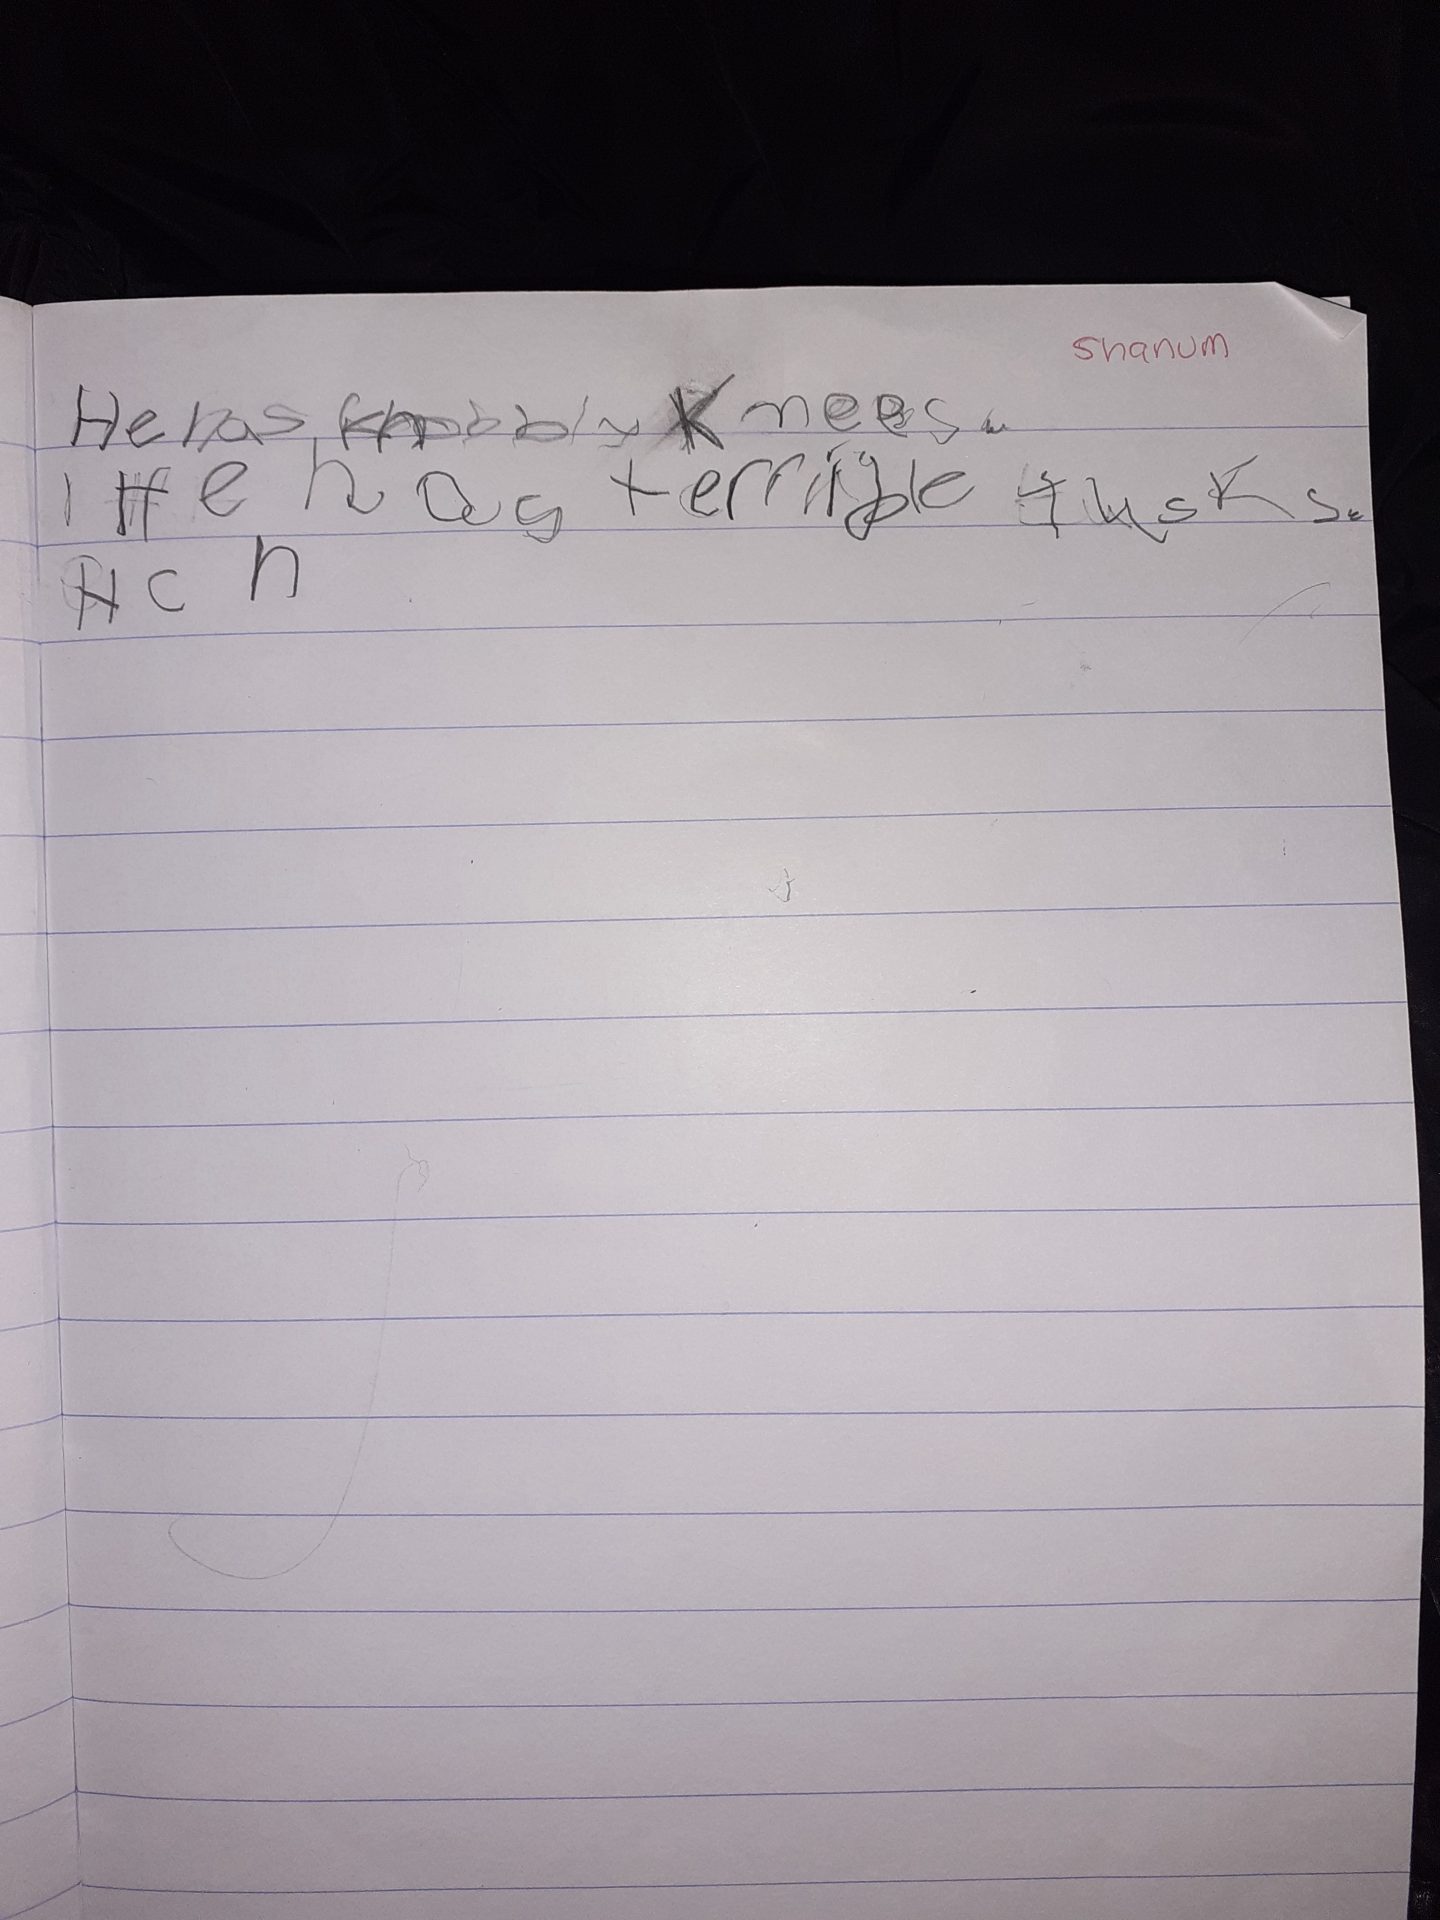 shanum
He has knobbly Knees.
He has terrible tusks.
Hc h